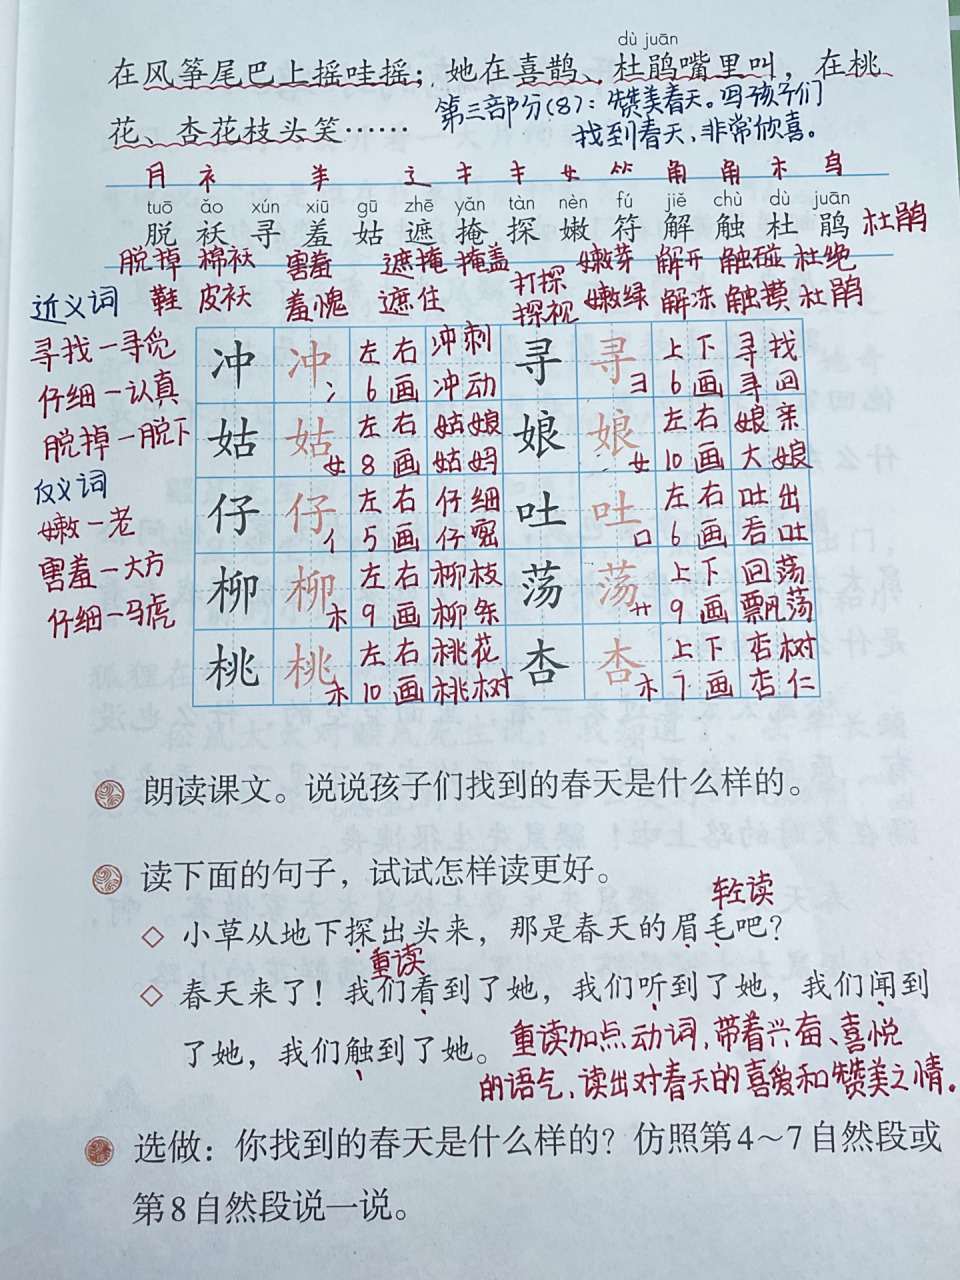 dù juān
在风筝尾巴上摇哇摇；她在喜鹊、杜鹃嘴里叫，在桃
第三部分(8)：赞美春天。写孩子们
花、杏花枝头笑……
找到春天，非常欣喜。
月 衤 羊 辶 扌 扌 女 ⺮ 角 角 木 鸟
tuō ǎo xún xiū gū zhē yǎn tàn nèn fú jiě chù dù juān
脱 袄 寻 羞 姑 遮 掩 探 嫩 符 解 触 杜 鹃 杜鹃
脱掉 棉袄 害羞 遮掩 掩盖 打探 嫩芽 解开 触碰 杜绝
鞋 皮袄 羞愧 遮住 探视 嫩绿 解冻 触摸 杜鹃
近义词
寻找—寻觅
仔细—认真
脱掉—脱下
反义词
嫩—老
害羞—大方
仔细—马虎
冲 冲 左右 冲刺 寻 寻 上下 寻找
冫 6画 冲动 彐 6画 寻回
姑 姑 左右 姑娘 娘 娘 左右 娘亲
女 8画 姑妈 女 10画 大娘
仔 仔 左右 仔细 吐 吐 左右 吐出
亻 5画 仔密 口 6画 吞吐
柳 柳 左右 柳枝 荡 荡 上下 回荡
木 9画 柳条 艹 9画 飘荡
桃 桃 左右 桃花 杏 杏 上下 杏树
木 10画 桃树 木 7画 杏仁
朗读课文。说说孩子们找到的春天是什么样的。
读下面的句子，试试怎样读更好。
轻读
◇ 小草从地下探出头来，那是春天的眉毛吧？
重读
◇ 春天来了！我们看到了她，我们听到了她，我们闻到
了她，我们触到了她。
重读加点动词，带着兴奋、喜悦
的语气，读出对春天的喜爱和赞美之情。
选做：你找到的春天是什么样的？仿照第4～7自然段或
第8自然段说一说。